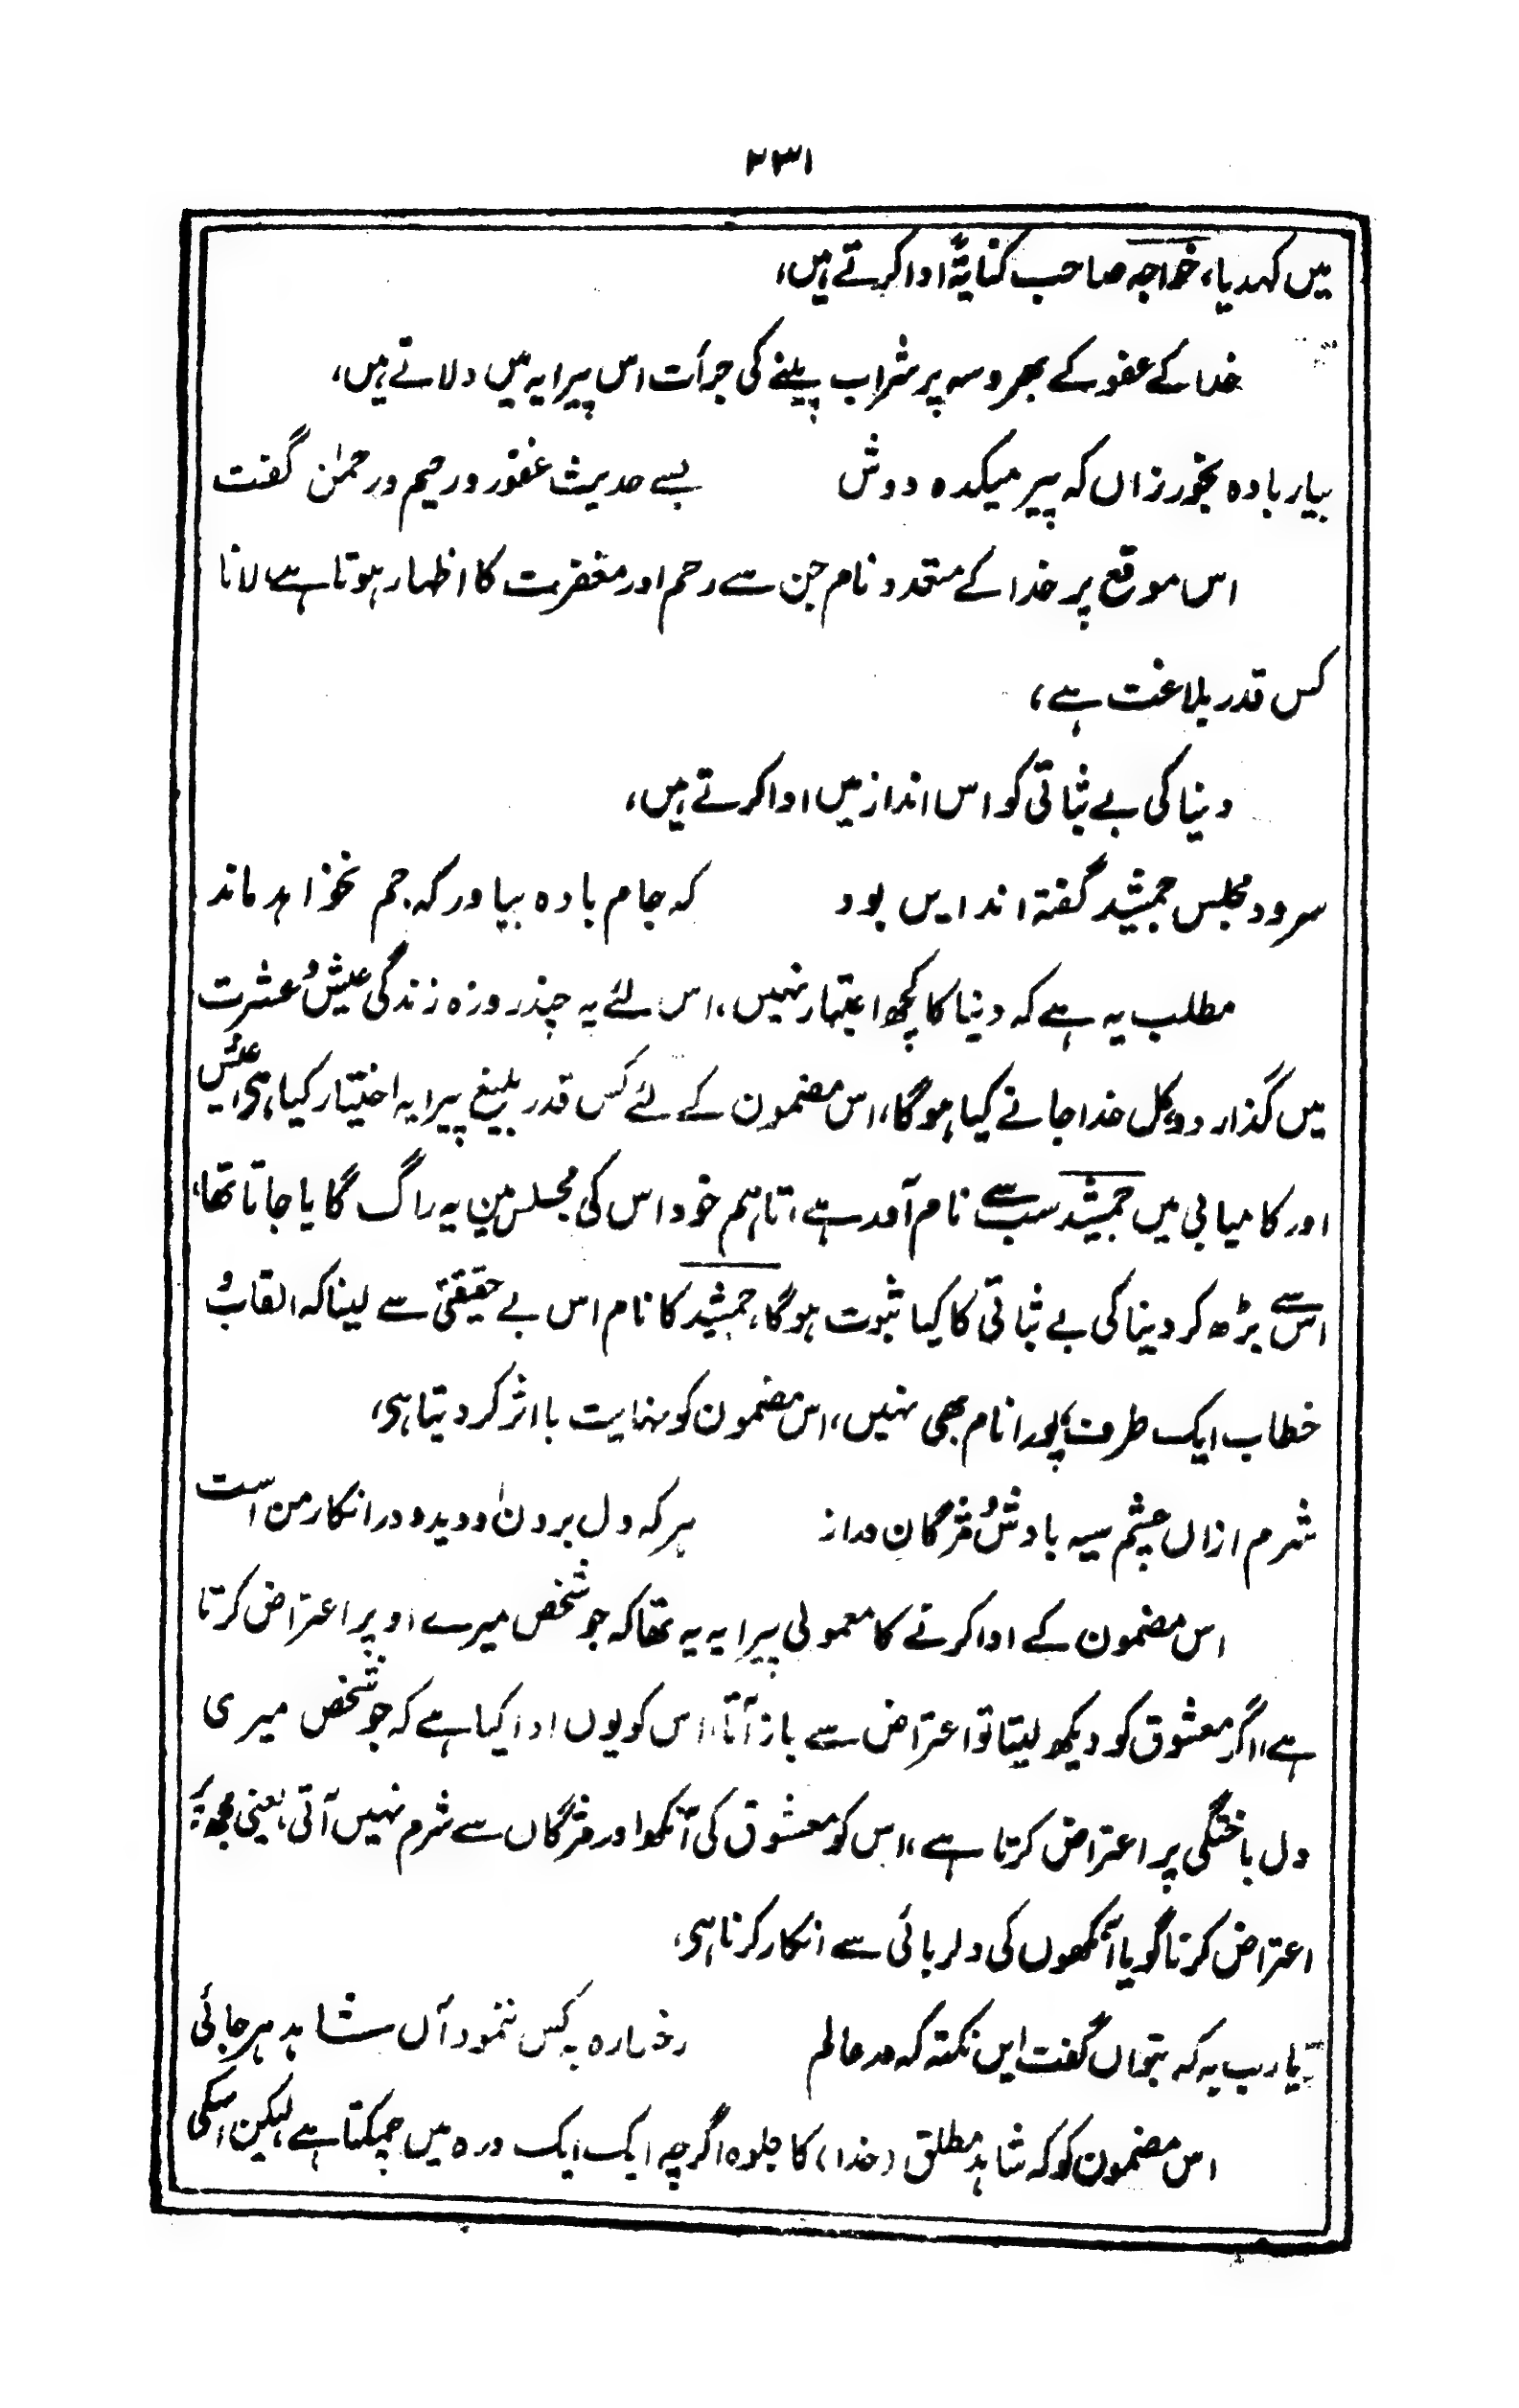 ۲۳۱
میں کہدیا، خواجہ صاحب کنایۃً ادا کرتے ہیں،
خدا کے عفو کے بھروسہ پر شراب پلینے کی جرأت اس پیرایہ میں دلاتے ہیں،
بیار بادہ بخور زاں کہ پیر میکدہ دوش بسے حدیث غفور و رحیم و رحمٰن گفت
اس موقع پر خدا کے متعدد نام جن سے رحم اور مغفرت کا اظہار ہوتا ہے لانا
کس قدر بلاغت ہے،
دنیا کی بے ثباتی کو اس انداز میں ادا کرتے ہیں،
سرود مجلس جمشید گفتہ اند ایں بود کہ جام بادہ بیاور کہ جم نخواہد ماند
مطلب یہ ہے کہ دنیا کا کچھ اعتبار نہیں، اس لئے یہ چند روزہ زندگی عیش و عشرت
میں گذار دو، کل خدا جانے کیا ہوگا، اس مضمون کے لئے کس قدر بلیغ پیرایہ اختیار کیا ہی، عیش
اور کامیابی میں جمشید سب سے نام آور ہے، تاہم خود اس کی مجلس میں یہ راگ گایا جاتا تھا،
اس سے بڑھ کر دنیا کی بے ثباتی کا کیا ثبوت ہوگا، جمشید کا نام اس بے حقیقتی سے لینا کہ القاب و
خطاب ایک طرف پورا نام بھی نہیں، اس مضمون کو نہایت با اثر کر دیتا ہی،
شرم ازاں چشم سیہ بادش و مژگان دراز ہر کہ دل بردن او دید و در انکار من است
اس مضمون کے ادا کرنے کا معمولی پیرایہ یہ تھا کہ جو شخص میرے اوپر اعتراض کرتا
ہے، اگر معشوق کو دیکھ لیتا تو اعتراض سے باز آتا، اس کو یوں ادا کیا ہے کہ جو شخص میری
دل باختگی پر اعتراض کرتا ہے، اس کو معشوق کی آنکھ اور مژگاں سے شرم نہیں آتی، یعنی مجھ پر
اعتراض کرنا گویا آنکھوں کی دلربائی سے انکار کرنا ہی،
یارب بہ کہ بتواں گفت ایں نکتہ کہ در عالم رخسارہ بہ کس ننمود آں شاہد ہر جائی
اس مضمون کو کہ شاہد مطلق (خدا) کا جلوہ اگرچہ ایک ایک ذرہ میں چمکتا ہے لیکن اسکی